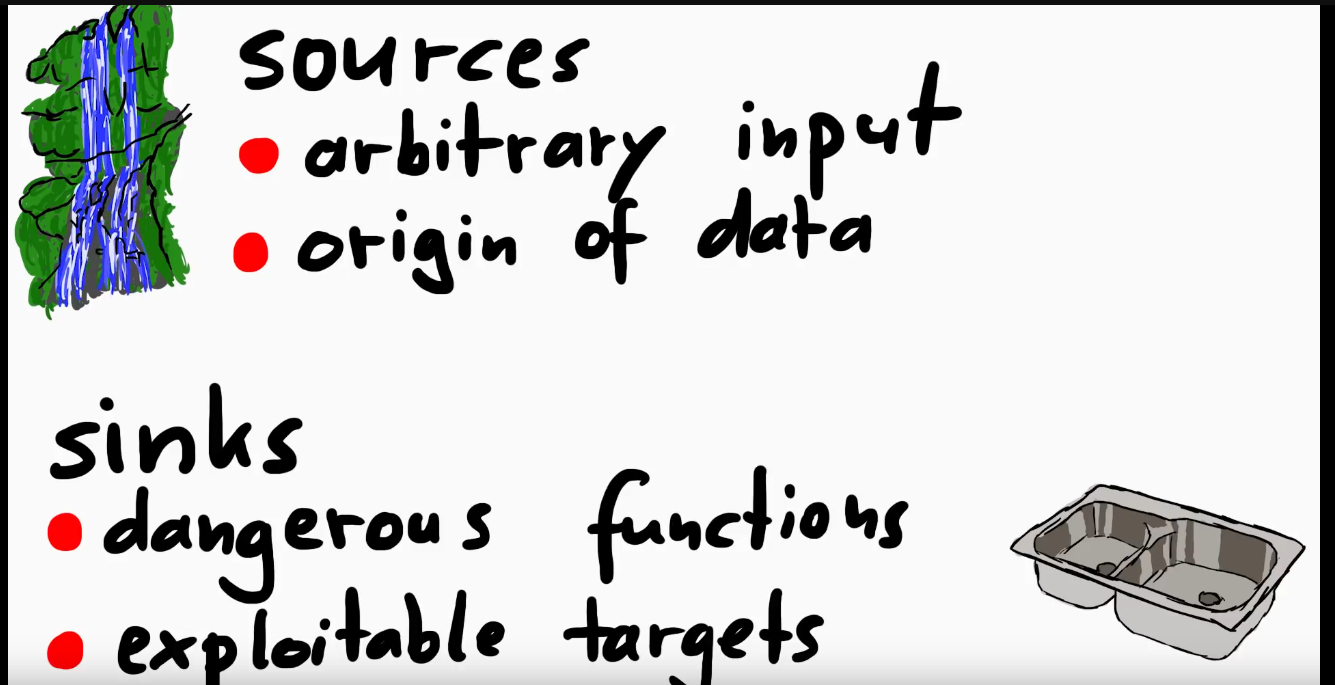 sources
arbitrary input
origin of data
sinks
dangerous functions
exploitable targets